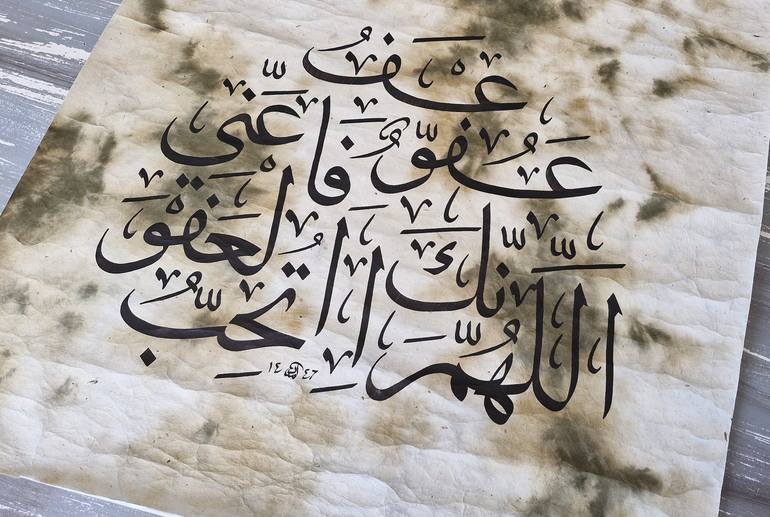 اللّٰهُمَّ إِنَّكَ عَفُوٌّ تُحِبُّ الْعَفْوَ فَاعْفُ عَنِّي
١٤٤٦